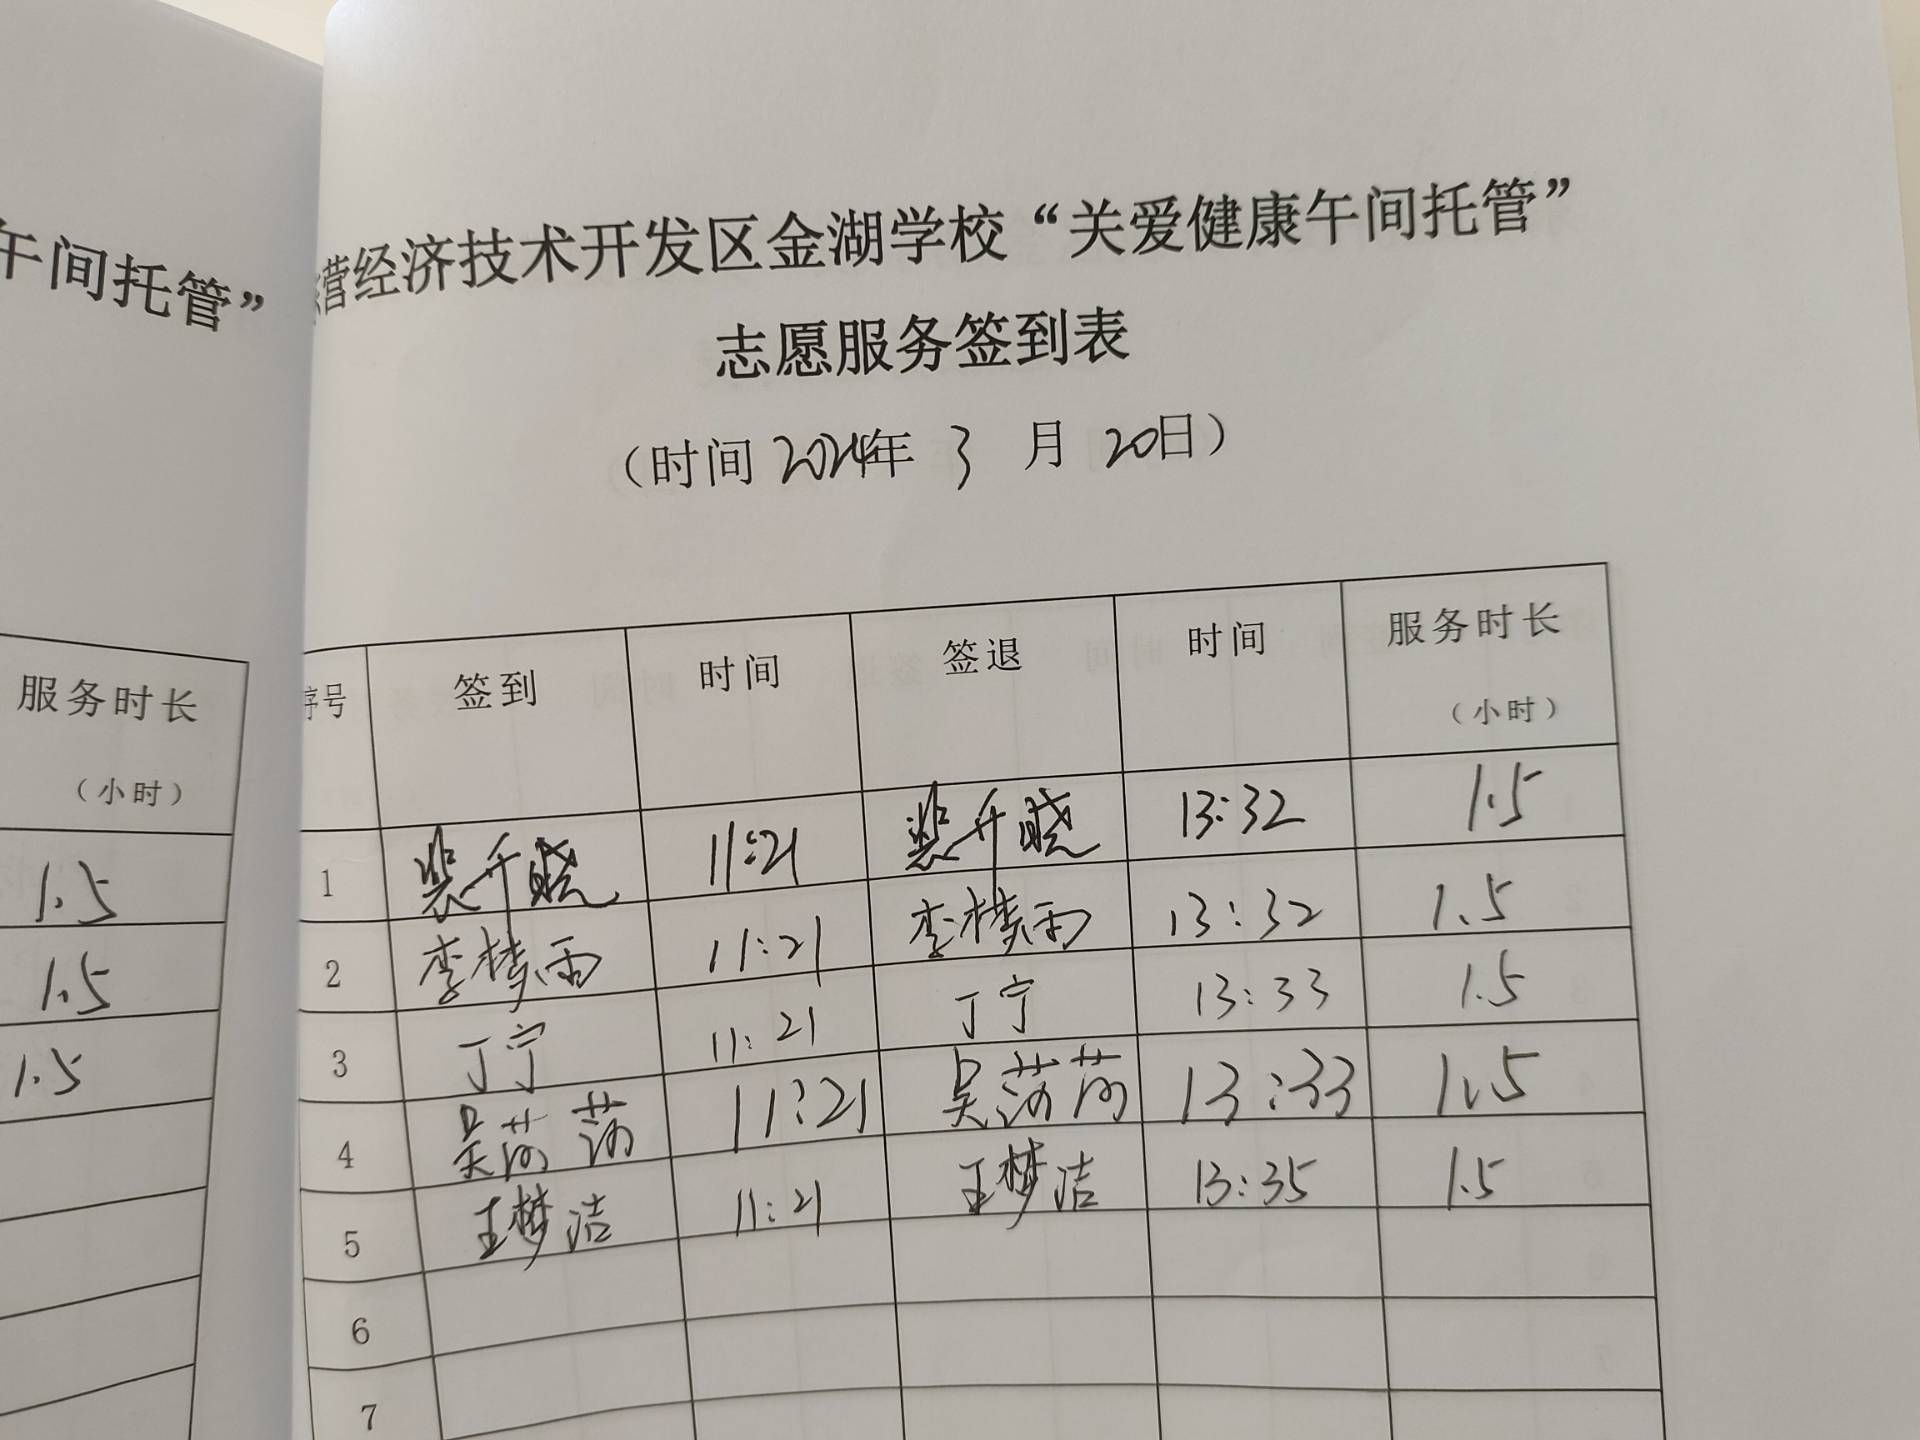 午间托管”
服务时长
（小时）
1.5
1.5
1.5
营经济技术开发区金湖学校“关爱健康午间托管”
志愿服务签到表
（时间 2024年 3 月 20日）
序号 签到 时间 签退 时间 服务时长（小时）
1 裴千晓 11:21 裴千晓 13:32 1.5
2 李樸雨 11:21 李樸雨 13:32 1.5
3 丁宁 11:21 丁宁 13:33 1.5
4 吴 11:21 吴 13:33 1.5
5 王梦洁 11:21 王梦洁 13:35 1.5
6
7